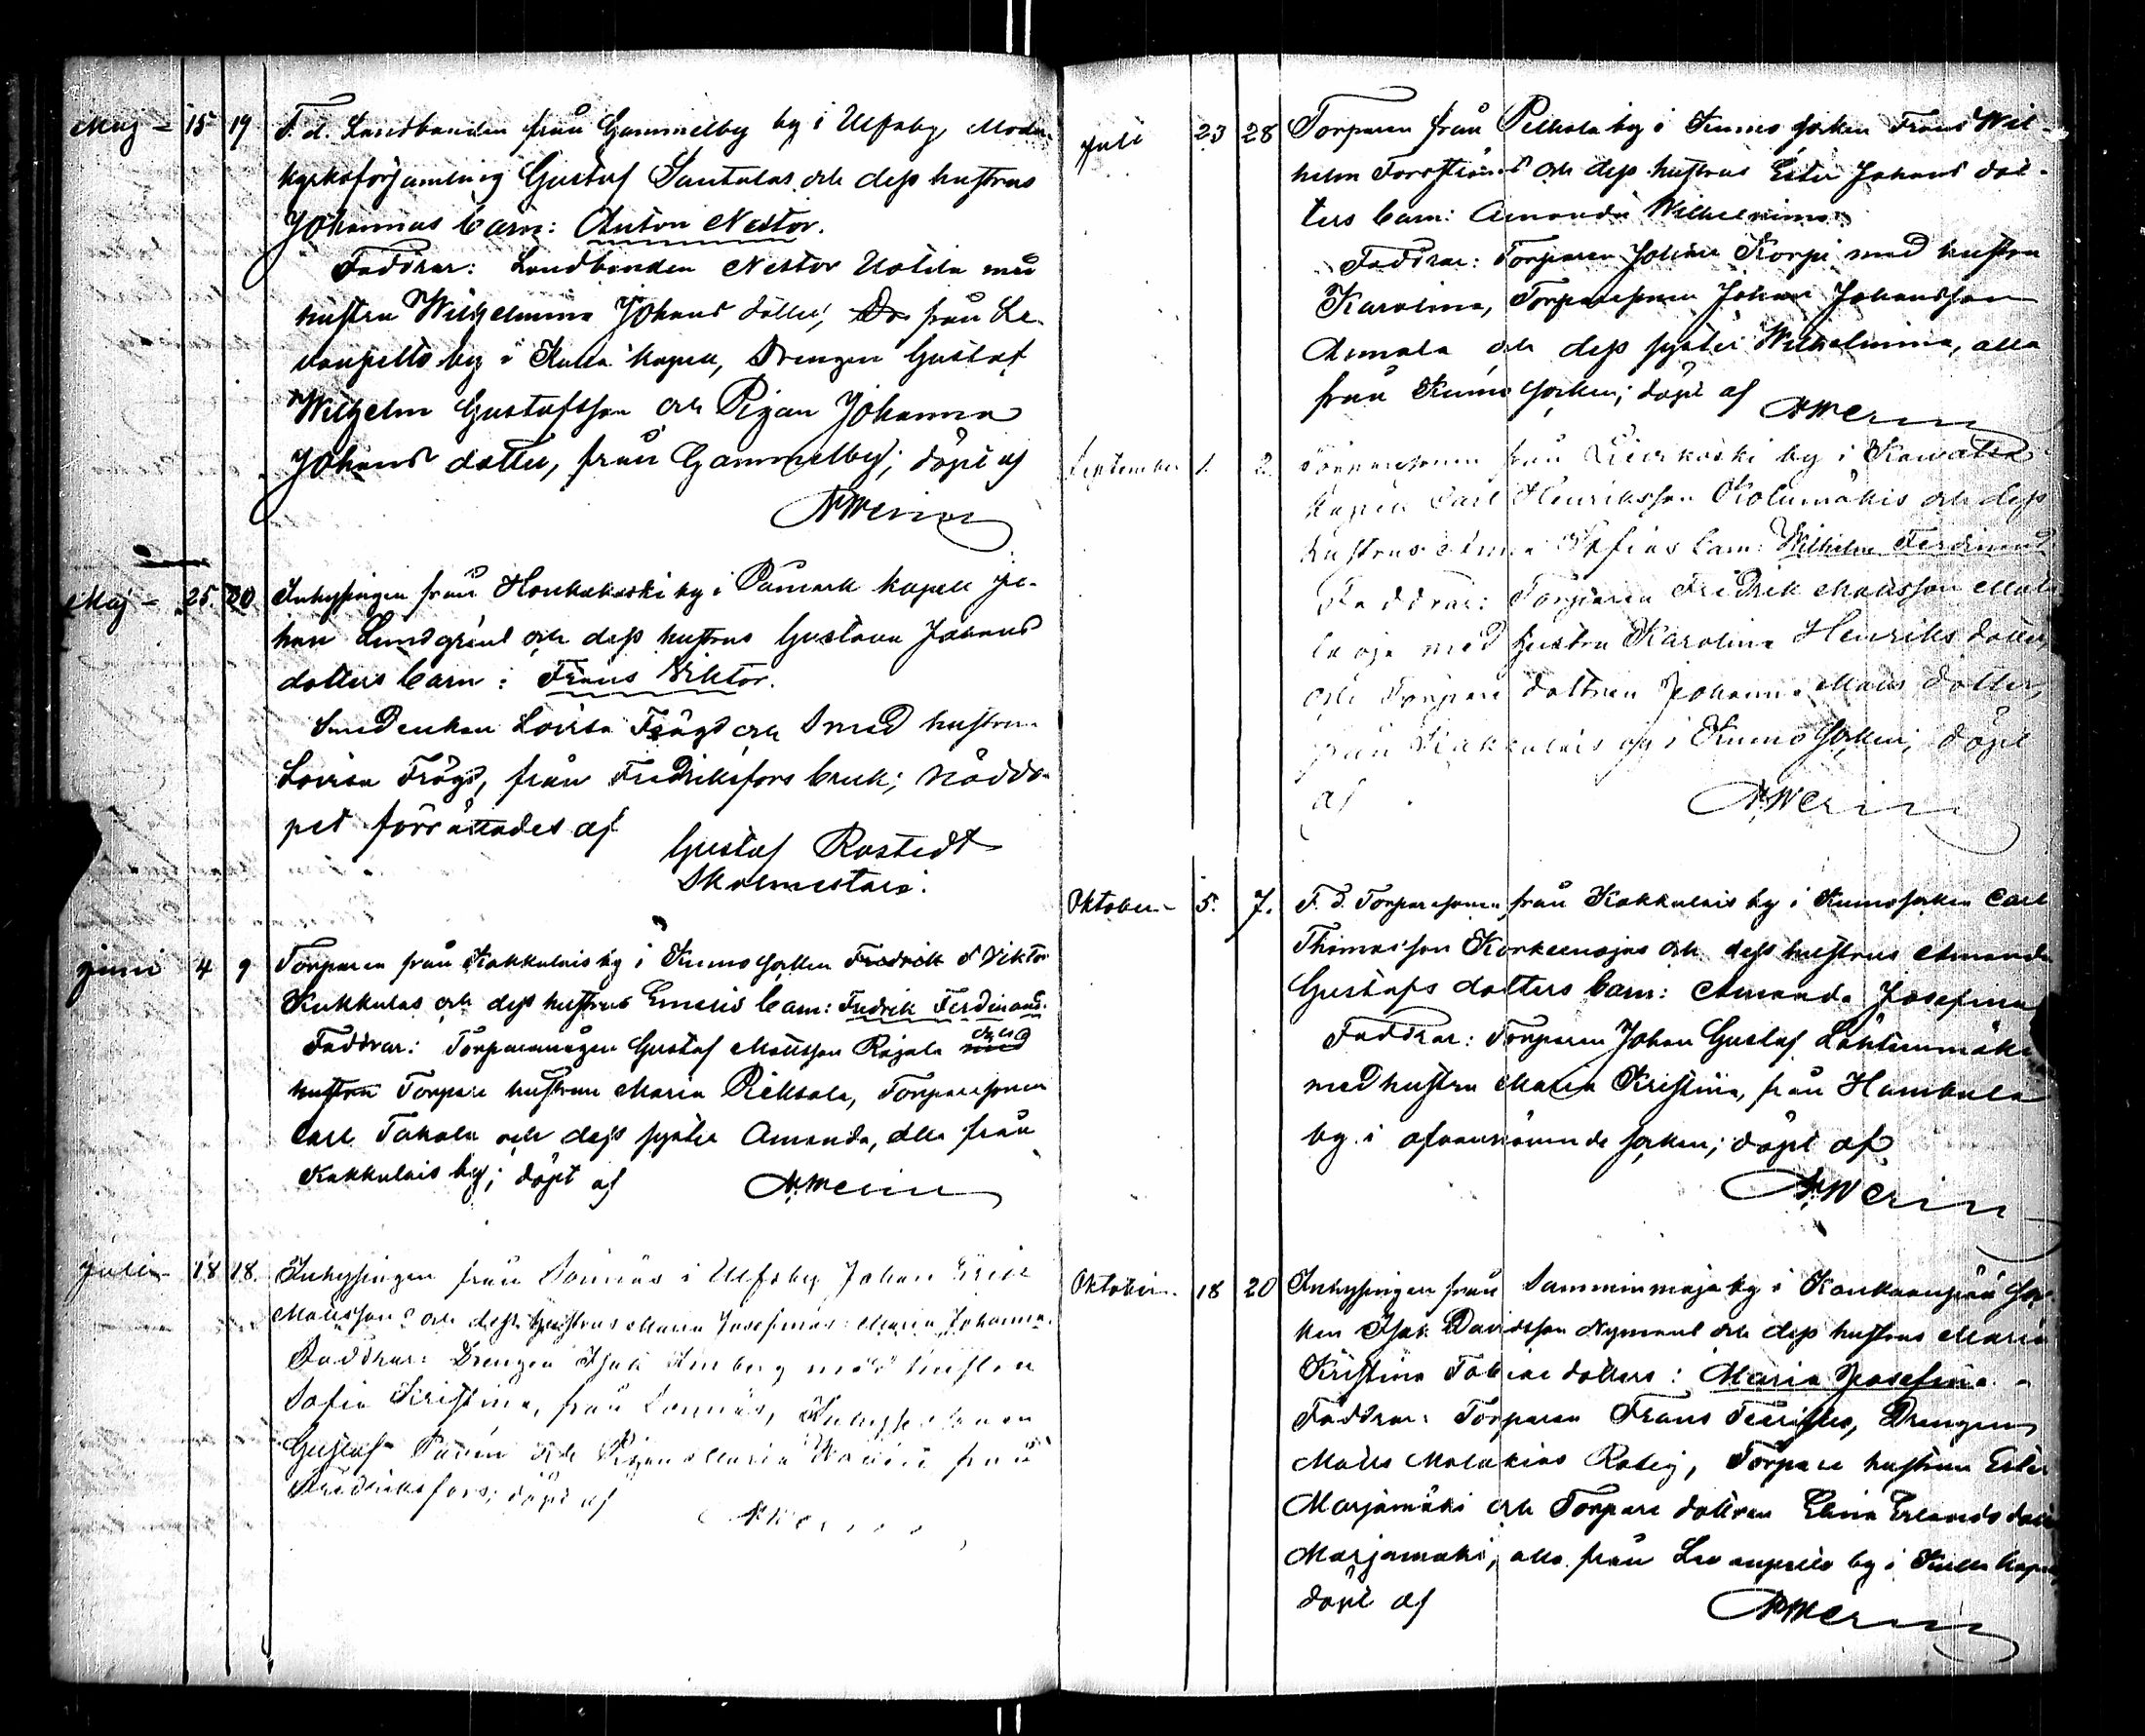 Maj - 15 19 F. d. Landbonden från Gammelby by i Ulfsby Moder-
kyrkoförsamling Gustaf Santalas och dess hustrus
Johannas barn: Anton Nestor.
Faddrar: Landbonden Nestor Uotila med
hustru Wilhelmina Johans dotter, från Le-
vanpelto by i Kulla kapell, Drengen Gustaf
Wilhelm Gustafsson och Pigan Johanna
Johans dotter, från Gammelby; döpt af
Maj - 25. 20 Inhysingen från Honkakoski by i Påmark kapell Jo-
han Lundgrens och dess hustrus Gustava Johans
dotters barn: Frans Viktor.
Smedenkan Lovisa Frögd och Smed hustrun
Lovisa Frögd, från Fredriksfors bruk; nöddo-
pet förrättades af
Gustaf Rostedt
Skolmestare.
Juni 4 9 Torparen från Kakkulais by i Kumo socken Fredrik Viktor
Kukkulas och dess hustrus barn: Fredrik Ferdinand.
Faddrar: Gustaf Mattsson Rajala med och
hustru Torpare hustrun Maria Torparesonen
Carl Takala och dess syster Amanda, alla från
Kakkulais by; döpt af
Juli - 18 18. Inhysingen från Sonnäs i Ulfsby Johan Erik
Mattssons och dess hustrus Maria Josefinas: Maria Johanna.
Faddrar: Drengen Isak med hustru
Sofia Kristina, från Sonnäs,
Gustaf och Pigan Maria från
Fredriksfors; döpt af
Juli 23 28 Torparen från by i Kumo socken Frans Wil-
helm och dess hustrus Ester Johans dot-
ters barn: Amanda Wilhelmina.
Faddrar: Torparen Johan Korpi med hustru
Karolina, Torparesonen Johan Johansson
Annala och dess syster Wilhelmina, alla
från Kumo socken; döpt af
September 1. 2. Torparesonen från by i
kapell Carl Henriksson Kolumäkis och dess
hustrus Anna Sofias barn: Wilhelm Ferdinand.
Faddrar: Torparen Fredrik Mattsson
med hustru Karolina Henriks dotter,
och Torpare dottren Johanna Matts dotter,
från Kakkulais by i Kumo socken; döpt
af
Oktober - 5. 7. F. d. Torparesonen från Kakkulais by i Kumo socken Carl
Thomasson Korkeenojas och dess hustrus Amanda
Gustafs dotters barn: Amanda Josefina
Faddrar: Torparen Johan Gustaf Lähteenmäki
med hustru Maria Kristina, från
by i ofvannämnde socken; döpt af
Oktober - 18 20 Inhysingen från Samminmaja by i Kankaanpää soc-
ken Isak Davidsson Nymans och dess hustrus Maria
Kristina Tobias dotters: Maria Josefina.
Faddrar: Torparen Frans Drengen
Matts Malakias Torpare hustrun Ester
Marjamäki och Torpare dottren Elina Erlands dotter
Marjamäki, alla från Levanpelto by i Kulla kapell,
döpt af